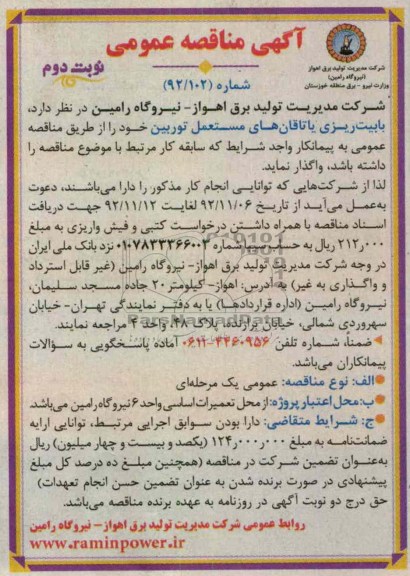 آگهی مناقصه عمومی
نوبت دوم
شماره (۹۲/۱۰۲)
شرکت مدیریت تولید برق اهواز
(نیروگاه رامین)
وزارت نیرو - برق منطقه خوزستان
شرکت مدیریت تولید برق اهواز- نیروگاه رامین در نظر دارد،
بابیت‌ریزی یاتاقان‌های مستعمل توربین خود را از طریق مناقصه
عمومی به پیمانکار واجد شرایط که سابقه کار مرتبط با موضوع مناقصه را
داشته باشد، واگذار نماید.
لذا از شرکت‌هایی که توانایی انجام کار مذکور را دارا می‌باشند، دعوت
به‌عمل می‌آید از تاریخ ۹۲/۱۱/۰۶ لغایت ۹۲/۱۱/۱۲ جهت دریافت
اسناد مناقصه با همراه داشتن درخواست کتبی و فیش واریزی به مبلغ
۲۱۲ر۰۰۰ ریال به حساب سیبا شماره ۰۱۰۷۸۳۳۳۶۶۰۰۲ نزد بانک ملی ایران
در وجه شرکت مدیریت تولید برق اهواز- نیروگاه رامین (غیر قابل استرداد
و واگذاری به غیر) به آدرس: اهواز- کیلومتر ۲۰ جاده مسجد سلیمان،
نیروگاه رامین (اداره قراردادها) یا به دفتر نمایندگی تهران- خیابان
سهروردی شمالی، خیابان برازنده، پلاک ۴۸، واحد ۴ مراجعه نمایند.
ضمناً، شماره تلفن ۴۴۶۰۹۵۶-۰۶۱۱ آماده پاسخگویی به سؤالات
پیمانکاران می‌باشد.
الف: نوع مناقصه: عمومی یک مرحله‌ای
ب: محل اعتبار پروژه: از محل تعمیرات اساسی واحد ۶ نیروگاه رامین می‌باشد.
ج: شرایط متقاضی: دارا بودن سوابق اجرایی مرتبط، توانایی ارایه
ضمانت‌نامه به مبلغ ۱۲۴ر۰۰۰ر۰۰۰ (یکصد و بیست و چهار میلیون) ریال
به‌عنوان تضمین شرکت در مناقصه (همچنین مبلغ ده درصد کل مبلغ
پیشنهادی در صورت برنده شدن به عنوان تضمین حسن انجام تعهدات)
حق درج دو نوبت آگهی در روزنامه به عهده برنده مناقصه می‌باشد.
روابط عمومی شرکت مدیریت تولید برق اهواز- نیروگاه رامین
www.raminpower.ir